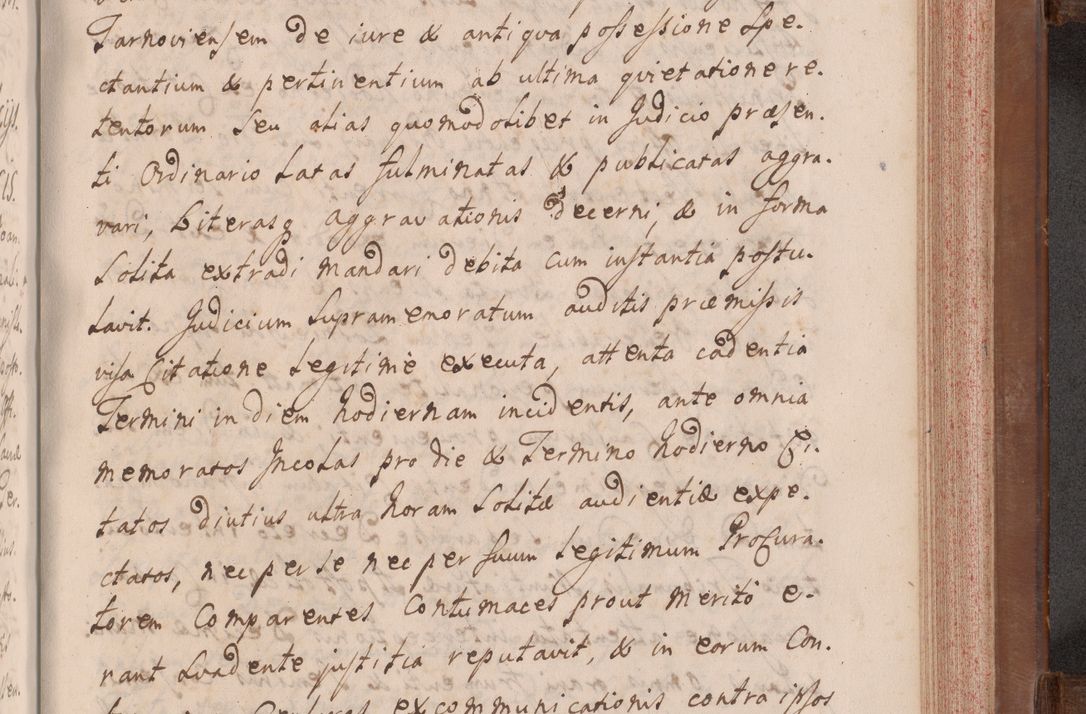 Tarnoviensem de iure & antiqva possessione spe-
ctantium & pertinentium ab ultima qvietatione re-
tentorum seu alias quomodolibet in Judicio præsen-
ti Ordinario Latas fulminatas & publicatas aggra-
vari, Literasq aggravationis decerni, & in forma
Solita extradi mandari debita cum instantia postu-
lavit. Judicium supramemoratum auditis præmissis
visa Citatione Legitimè executa, attenta cadentia
Termini in diem hodiernam incidentis, ante omnia
memoratos Incolas pro die & Termino hodierno Ci-
tatos diutius ultra horam Solitæ audientiæ expe-
ctatos, nec per se nec per suum Legitimum Procura-
torem Comparentes Contumaces prout meritò e-
rant Svadente justitia reputavit, & in eorum Con-
excommunicationis contra ipsos